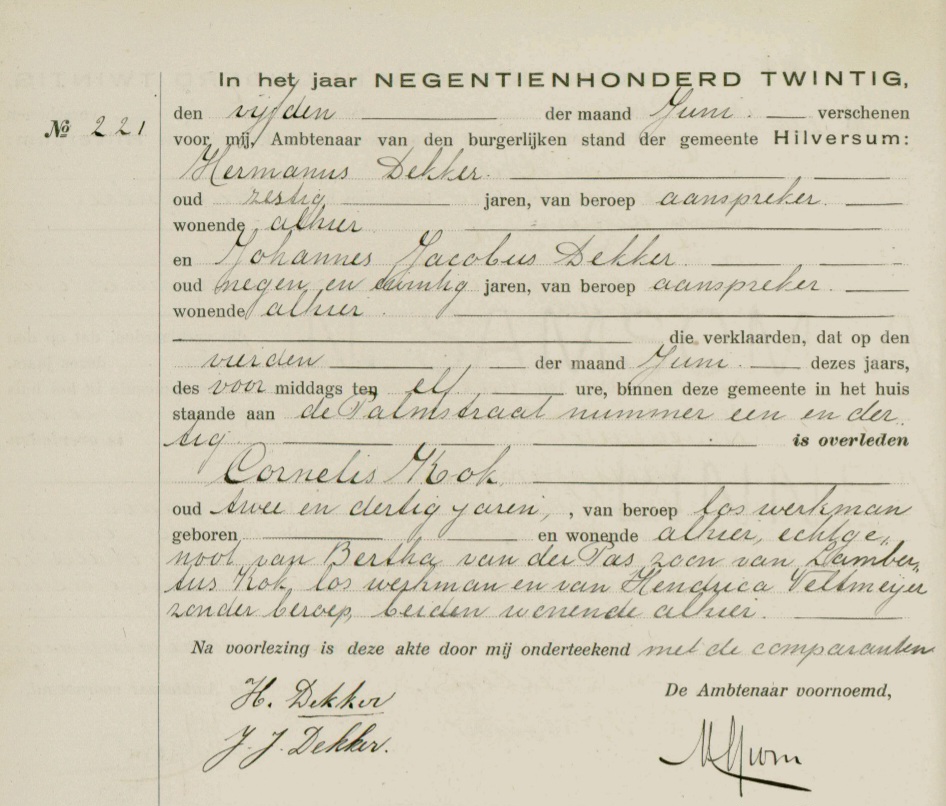 In het jaar NEGENTIENHONDERD TWINTIG,
den vijfden der maand Juni. verschenen
No 221
voor mij, Ambtenaar van den burgerlijken stand der gemeente Hilversum:
Hermanus Dekker.
oud zestig jaren, van beroep aanspreker.
wonende alhier
en Johannes Jacobus Dekker.
oud negen en twintig jaren, van beroep aanspreker.
wonende alhier.
die verklaarden, dat op den
vierden der maand Juni. dezes jaars,
des voor middags ten elf ure, binnen deze gemeente in het huis
staande aan de Palmstraat nummer een en der„
tig is overleden
Cornelis Kok,
oud twee en dertig jaren, , van beroep los werkman
geboren en wonende alhier, echtge„
noot van Bertha van der Pas zoon van Lamber„
tus Kok, los werkman en van Hendrica Veltmeijer
zonder beroep, beiden wonende alhier.
Na voorlezing is deze akte door mij onderteekend met de comparanten
De Ambtenaar voornoemd,
H. Dekker
J. J. Dekker.